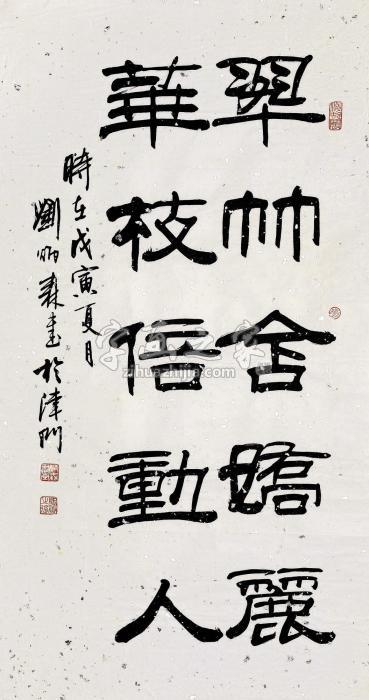 翠竹含嬌麗
華枝倍動人
時在戊寅夏月
劉炳森書於津門
字画之家
zihuazhijia.com